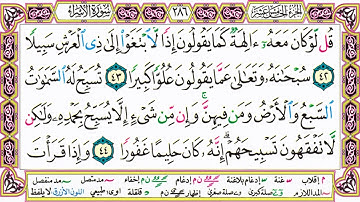 سورة الإسراء ٢٨٦ الجزء الخامس عشر
قُل لَّوْ كَانَ مَعَهُۥٓ ءَالِهَةٌ كَمَا يَقُولُونَ إِذًا لَّٱبْتَغَوْا۟ إِلَىٰ ذِى ٱلْعَرْشِ سَبِيلًا
٤٢ سُبْحَٰنَهُۥ وَتَعَٰلَىٰ عَمَّا يَقُولُونَ عُلُوًّا كَبِيرًا ٤٣ تُسَبِّحُ لَهُ ٱلسَّمَٰوَٰتُ
ٱلسَّبْعُ وَٱلْأَرْضُ وَمَن فِيهِنَّ ۚ وَإِن مِّن شَىْءٍ إِلَّا يُسَبِّحُ بِحَمْدِهِۦ وَلَٰكِن
لَّا تَفْقَهُونَ تَسْبِيحَهُمْ ۗ إِنَّهُۥ كَانَ حَلِيمًا غَفُورًا ٤٤ وَإِذَا قَرَأْتَ